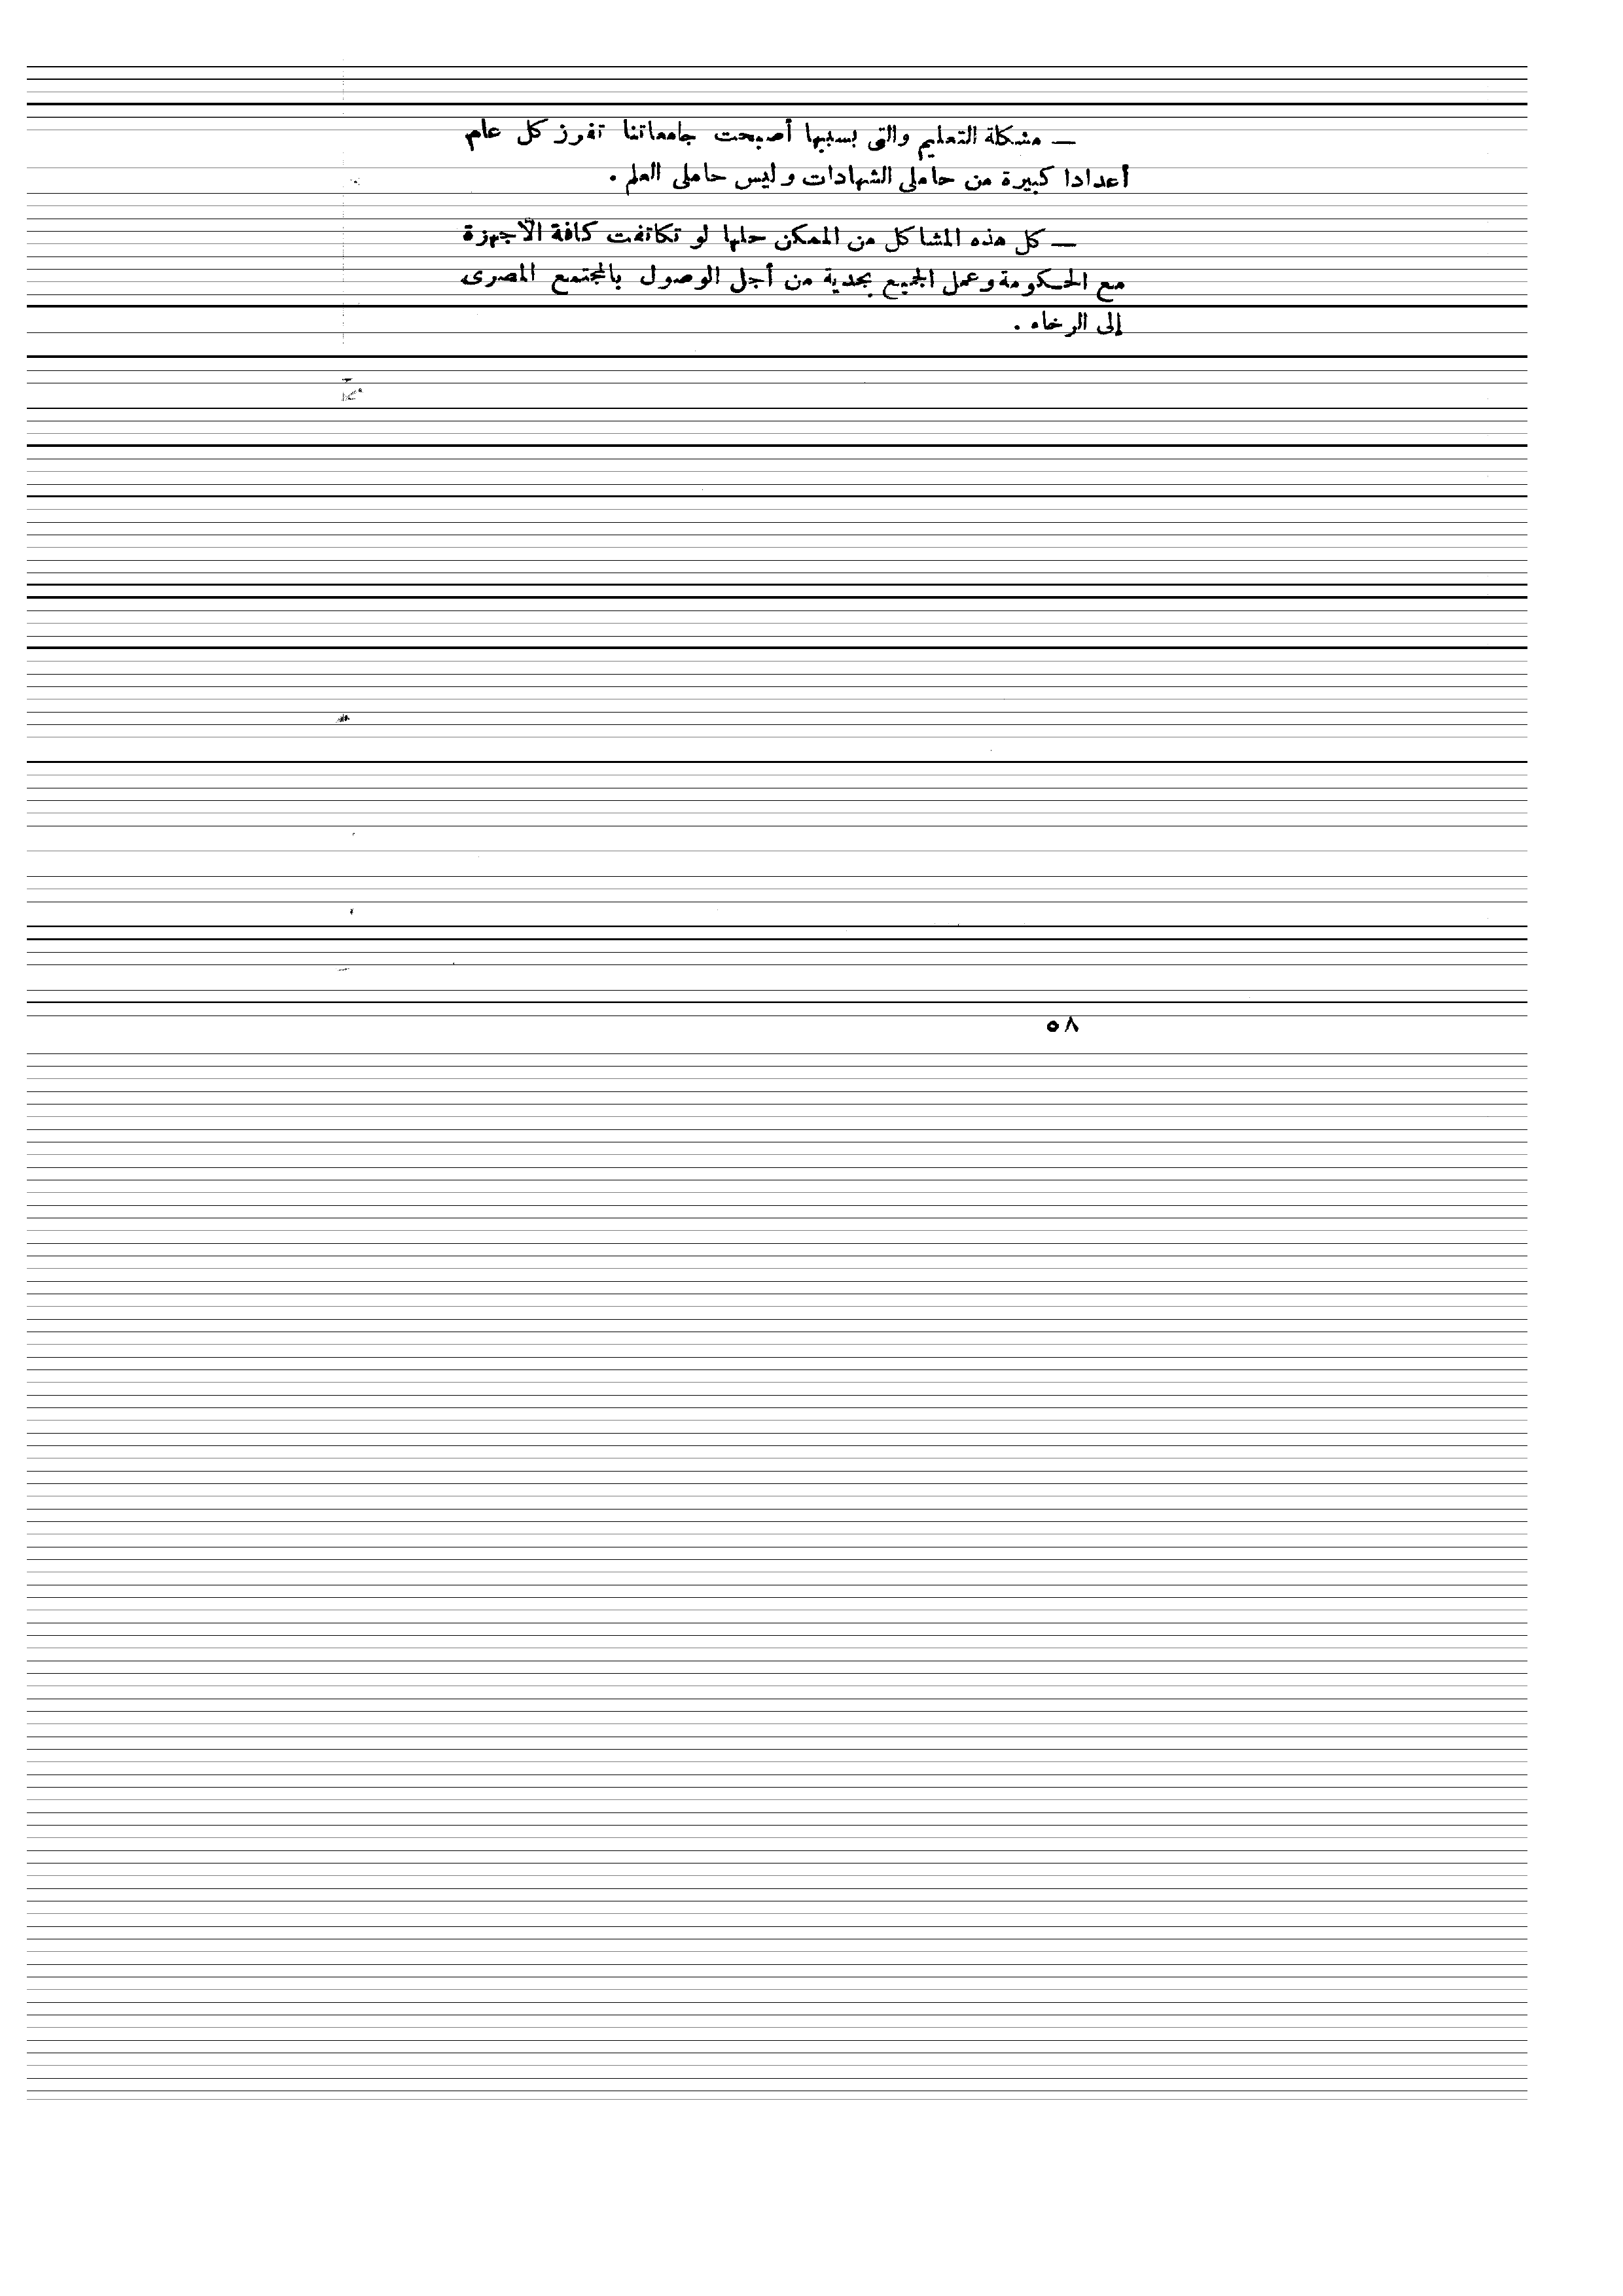 — مشكلة التعليم والتى بسببها أصبحت جامعاتنا تفرز كل عام
أعدادا كبيرة من حاملى الشهادات وليس حاملى العلم .
— كل هذه المشاكل من الممكن حلها لو تكاتفت كافة الأجهزة
مع الحكومة وعمل الجميع بجدية من أجل الوصول بالمجتمع المصرى
إلى الرخاء .
٥٨